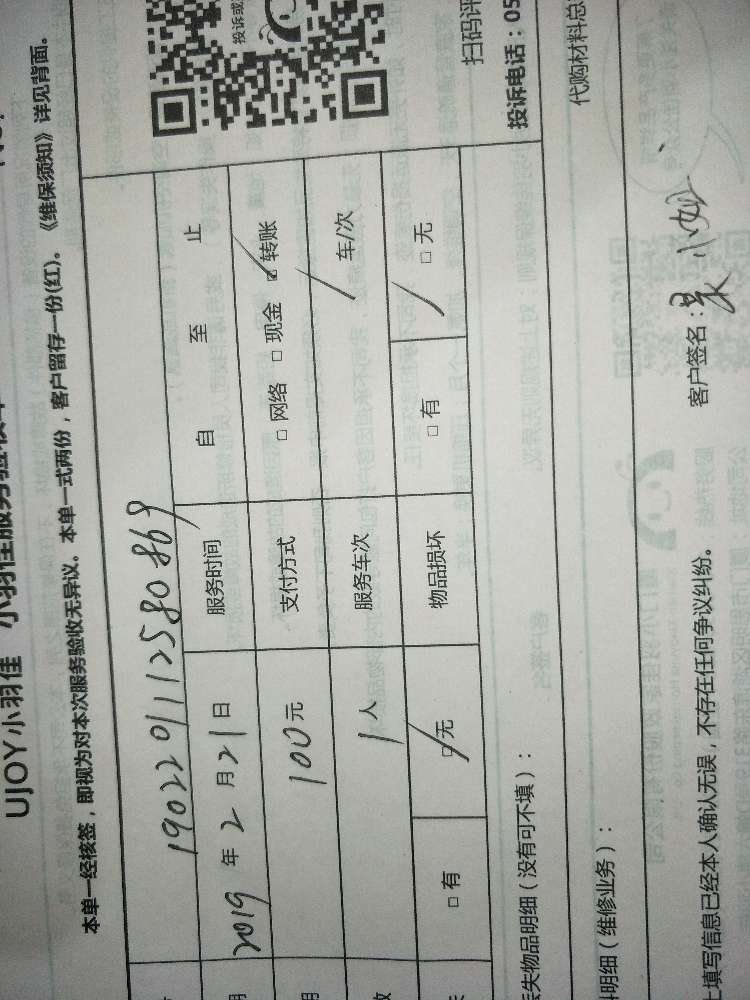 UJOY小羽佳 小羽佳服务验收单
本单一经核签，即视为对本次服务验收无异议。本单一式两份，客户留存一份(红)。《维保须知》详见背面。
1902201112580869
2019 年 2 月 21 日 服务时间 自 至 止
100 元 支付方式 □ 网络 □ 现金 ☑ 转账
1 人 服务车次 / 车/次
□ 有 ☑ 无 物品损坏 □ 有 / □ 无
投诉或
扫码评
投诉电话：05
丢失物品明细（没有可不填）：
料明细（维修业务）：
代购材料总
上填写信息已经本人确认无误，不存在任何争议纠纷。
客户签名：